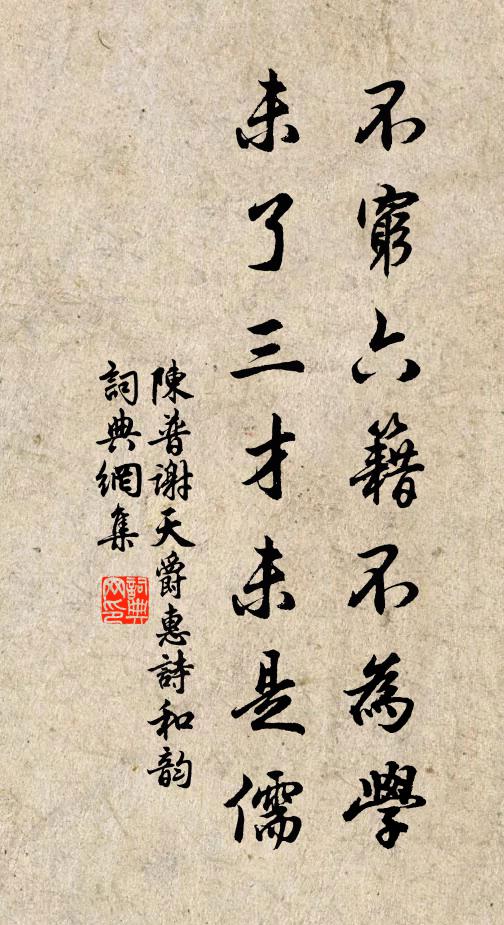 不窮六籍不為學
未了三才未是儒
陳普謝天爵惠詩和韵
詞典網集
詞典
网印